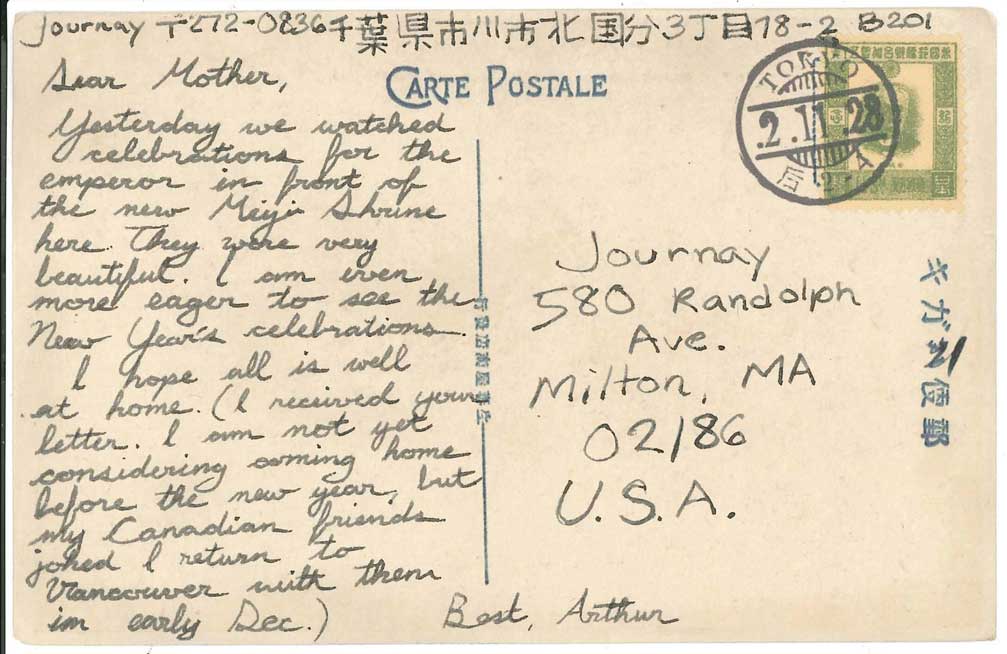 Journay 〒272-0836千葉県市川市北国分3丁目78-2 B201
CARTE POSTALE
Dear Mother,
Yesterday we watched
celebrations for the
emperor in front of
the new Meiji Shrine
here. They were very
beautiful. I am even
more eager to see the
New Year's celebrations.
I hope all is well
at home. (I received your
letter. I am not yet
considering coming home
before the new year, but
my Canadian friends
joked I return to
Vancouver with them
im early Dec.)
Best, Arthur
TOKYO
2.11.28
Journay
580 Randolph
Ave.
Milton, MA
02186
U.S.A.
キガハ便郵